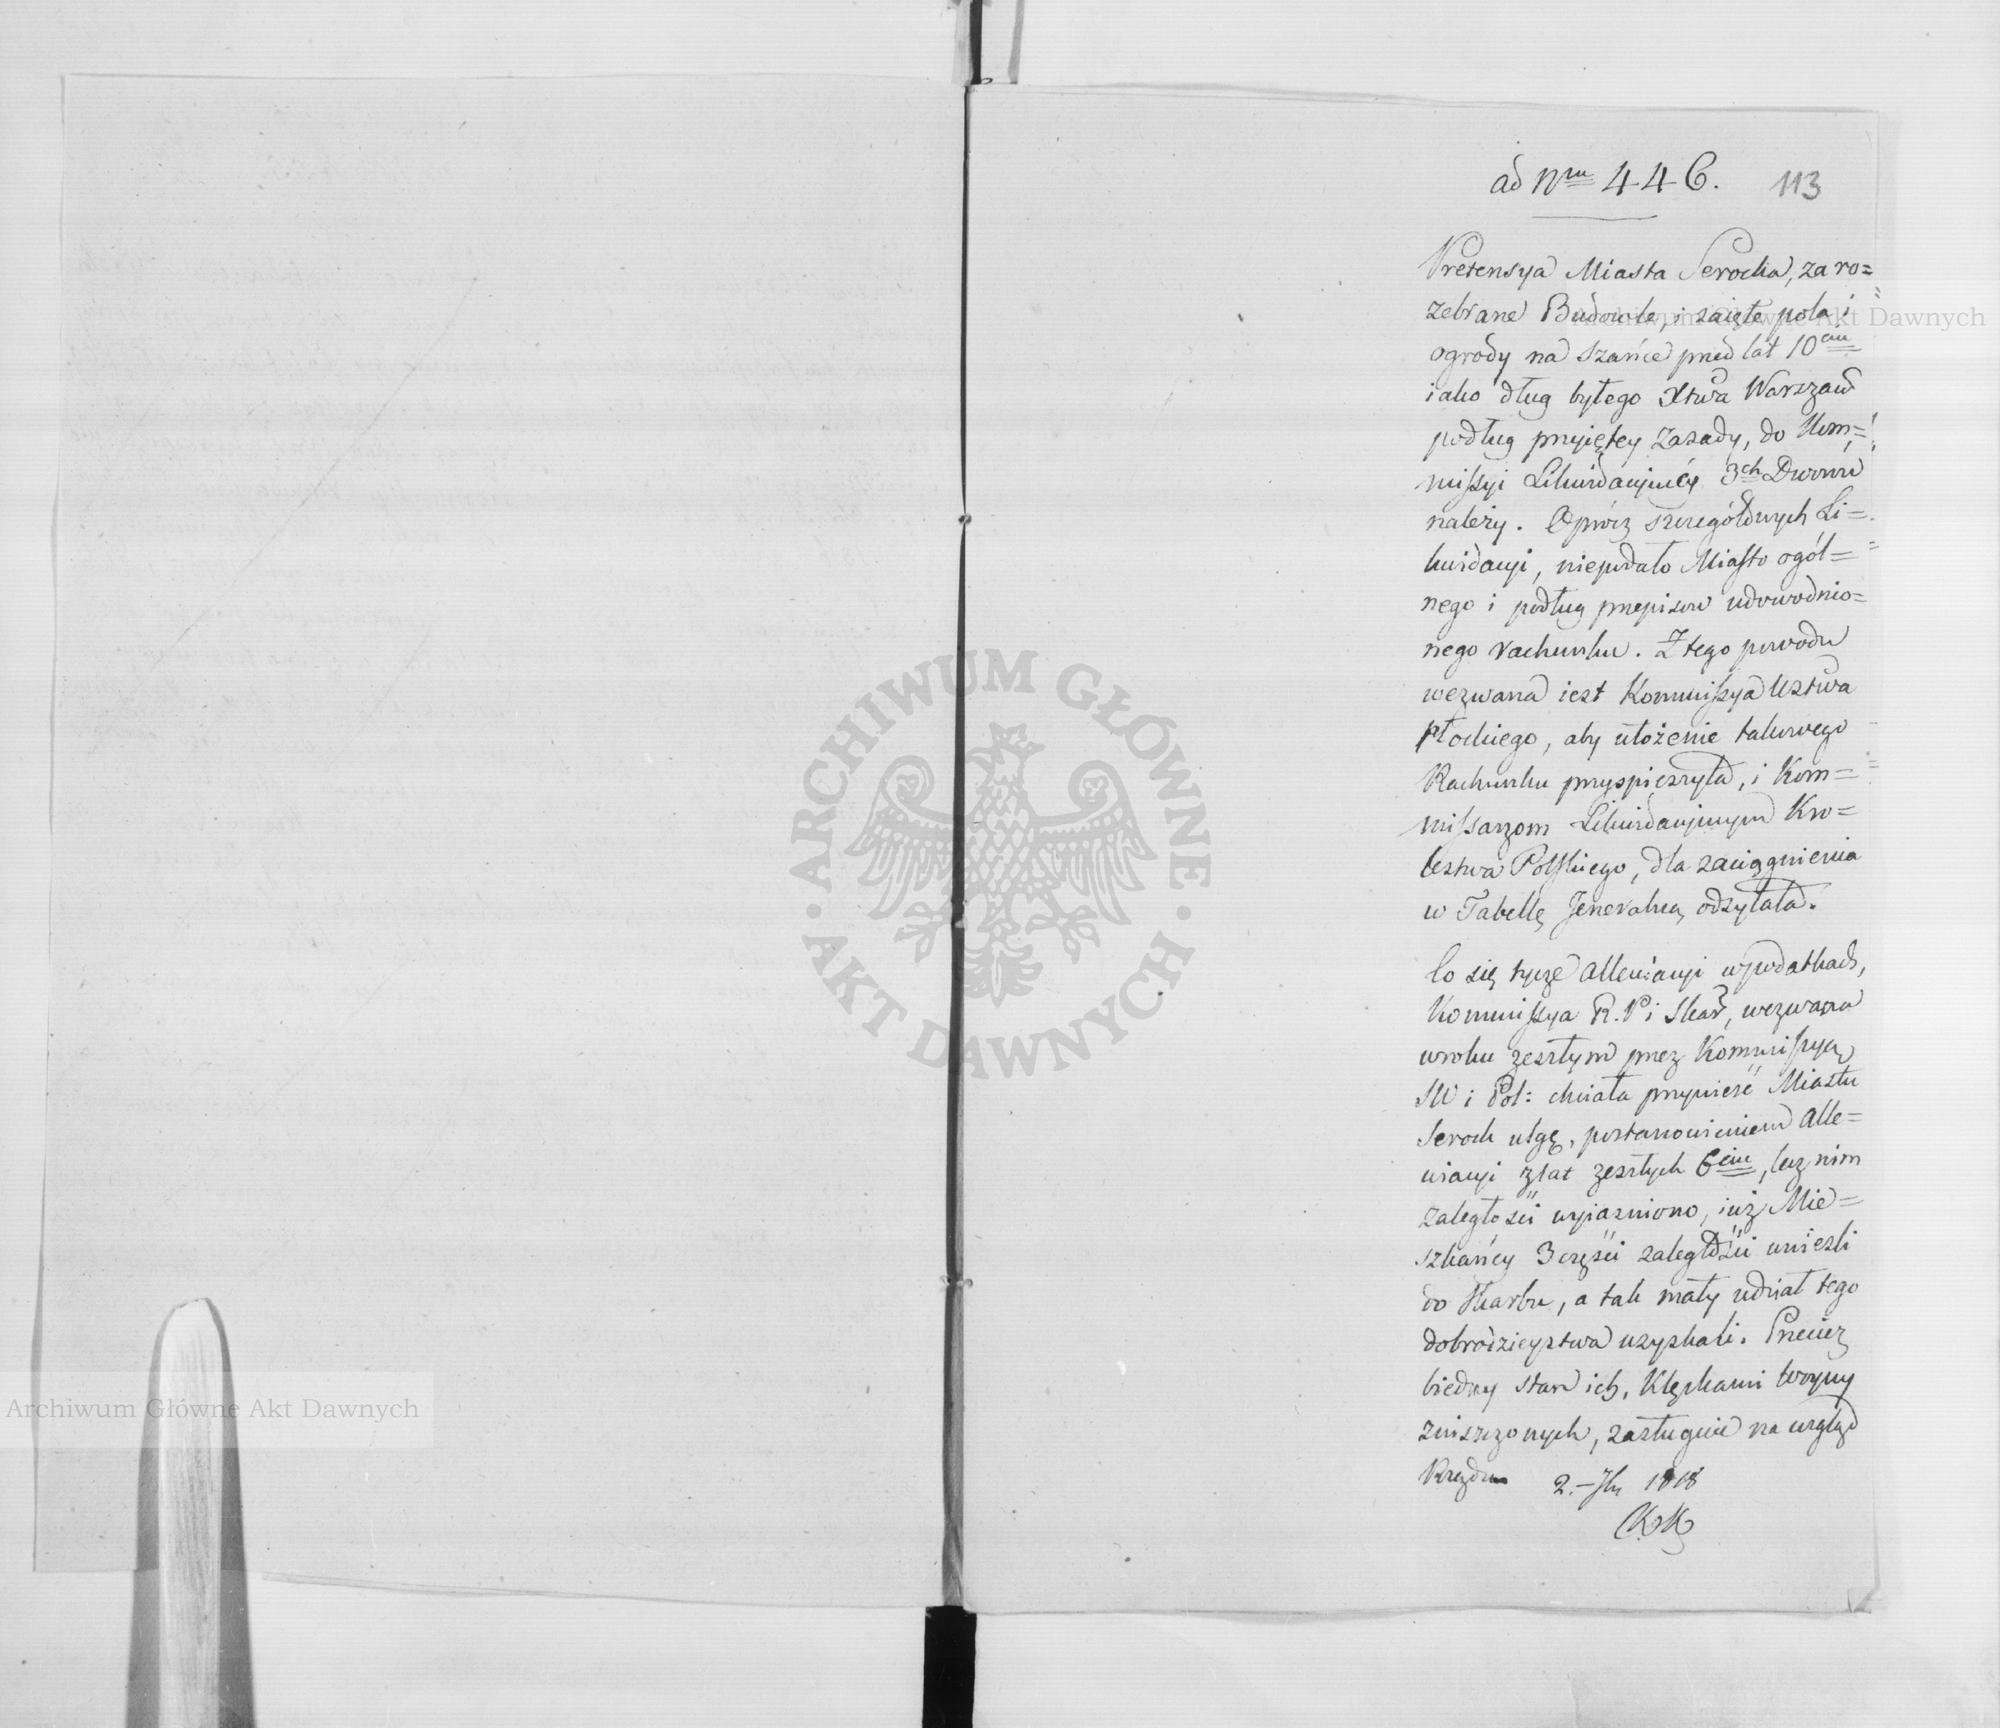 ad Nrum 446. 113
Pretensya Miasta Serocka, za ro=
zebrane Budowle, i zaięte pola i
ogrody na szańce przed lat 10ciu
iako dług byłego Xtwa Warszaw
podług przyiętey zasady, do Kom=
missyi Likwidacyiney 3ch Dworów
należy. Oprócz szczegółowych Li=
kwidacyi, niepodało Miasto ogól=
nego i podług przepisów udowodnio=
nego rachunku. Z tego powodu
wezwana iest Kommissya Wztwa
Płockiego, aby ułożenie takowego
Rachunku przyspieszyła, i Kom=
missarzom Likwidacyinym Kró=
lestwa Polskiego, dla zaciągnienia
w Tabellę Jeneralną odsyłała.
Co się tycze allewiacyi w podatkach,
Kommissya R. P. i Skar, wezwana
w roku zeszłym przez Kommissyą
SW i Pol: chciała przynieść Miastu
Serock ulgę, postanowieniem alle=
wiacyi z lat zeszłych 6ciu, lecz nim
zaległości wyiaśniono, iuż Mie=
szkańcy 3 części zaległości wnieśli
do Skarbu, a tak mały udział tego
dobrodzieystwa uzyskali. Przecież
biedny stan ich, klęskami woyny
zniszczonych, zasługuie na wzgląd
Rządu 2. 1818
KK
ARCHIWUM GŁÓWNE
AKT DAWNYCH
Archiwum Główne Akt Dawnych
Archiwum Główne Akt Dawnych